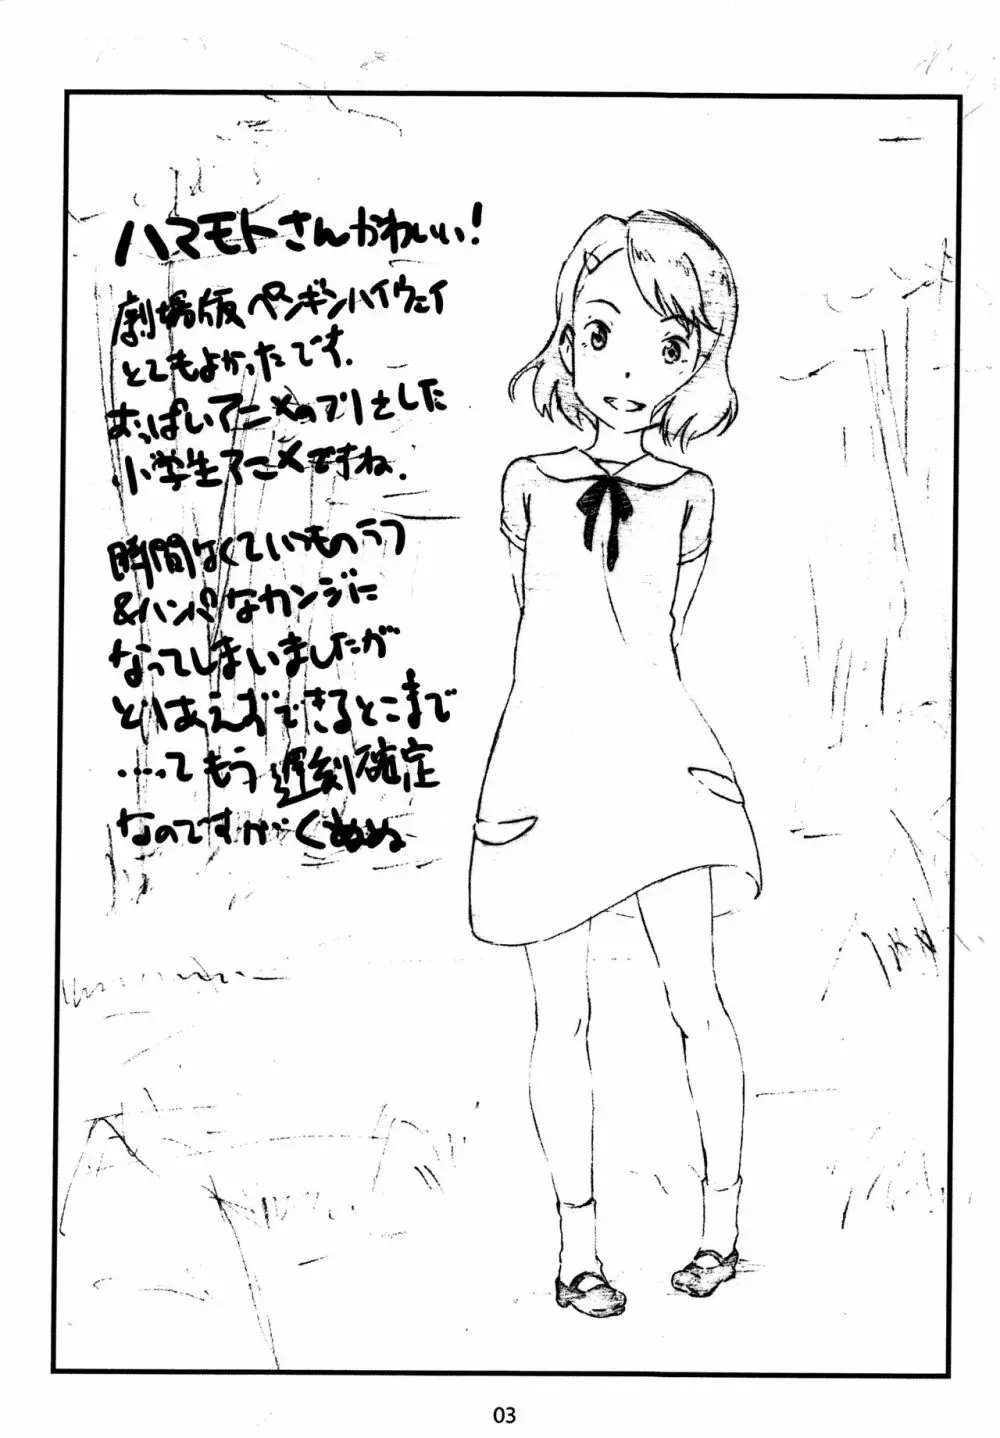 ハマモトさんかわいい!
劇場版ペンギンハイウェイ
とてもよかったです.
おっぱいアニメのフリをした
小学生アニメですね.
時間なくていつものラフ
&ハンパなカンジに
なってしまいましたが
とりあえずできるとこまで
……てもう遅刻確定
なのですがぐぬぬ
03